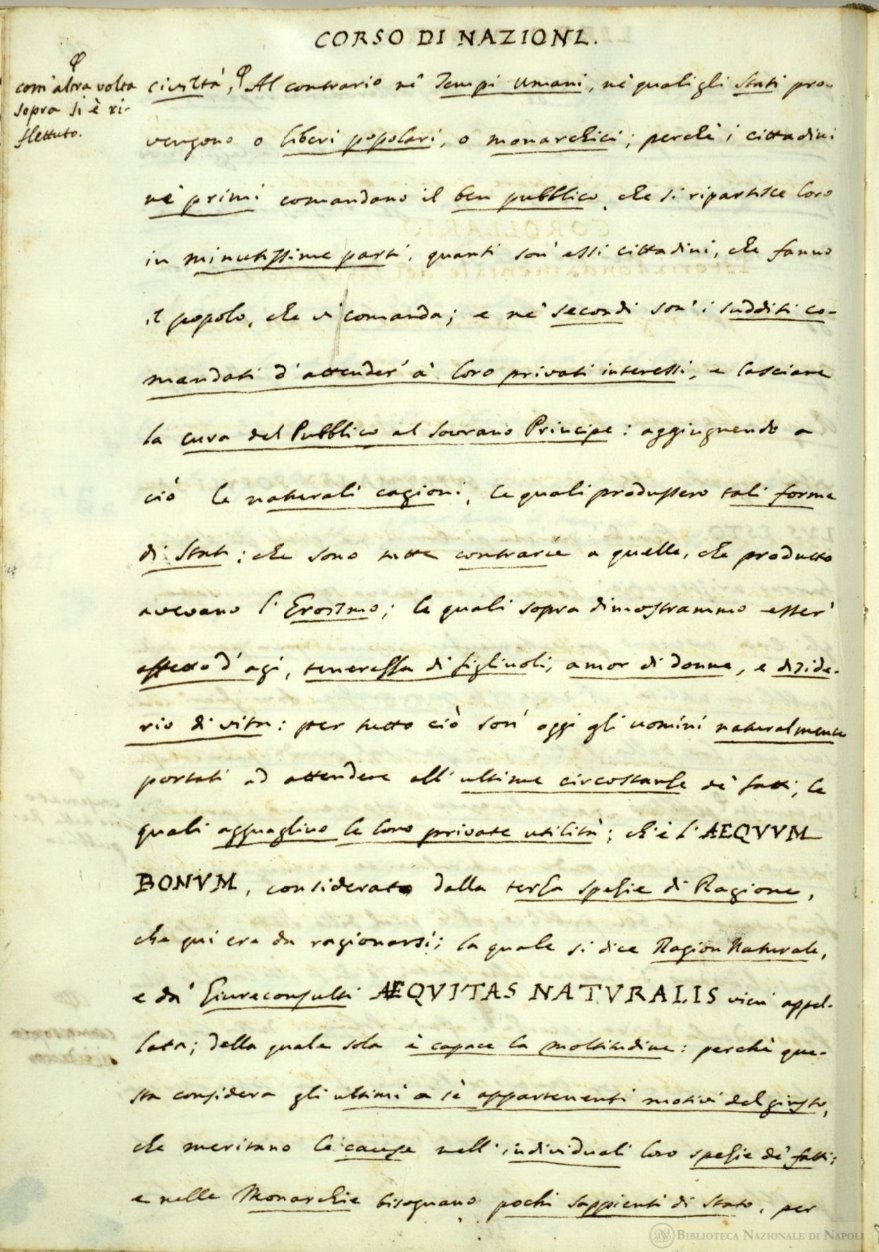 CORSO DI NAZIONI.
com' altra volta
sopra si è ri-
flettuto.
civiltà, Al contrario ne' Tempi Umani, ne' quali gli Stati pro-
vengono o liberi popolari, o monarchici; perchè i cittadini
ne' primi comandano il ben pubblico, che si ripartisce loro
in minutissime parti, quanti son' essi cittadini, che fanno
il popolo, che vi comanda; e ne' secondi son' i sudditi co-
mandati d' attender' a' loro privati interessi, e lasciare
la cura del Pubblico al Sovrano Principe: aggiugnendo a
ciò le naturali cagioni, le quali produssero tali forme
di Stati; che sono tutte contrarie a quelle, che produtto
avevano l' Eroismo; le quali sopra dimostrammo esser'
affetto d' agi, tenerezza di figliuoli, amor di donne, e diside-
rio di vita: per tutto ciò son' oggi gli uomini naturalmente
portati ad attendere all' ultime circostanze de' fatti, le
quali agguaglino le loro private utilità; ch'è l' AEQVVM
BONVM, considerato dalla terza spezie di Ragione,
che qui era da ragionarsi; la quale si dice Ragion Naturale,
e da' Giureconsulti AEQVITAS NATVRALIS vien appel-
lata; della quale sola è capace la moltitudine: perchè que-
sta considera gli ultimi a sè appartenenti motivi del giusto,
che meritano le cause nell' individuali loro spezie de' fatti;
e nelle Monarchie bisognano pochi sappienti di Stato, per
BIBLIOTECA NAZIONALE DI NAPOLI